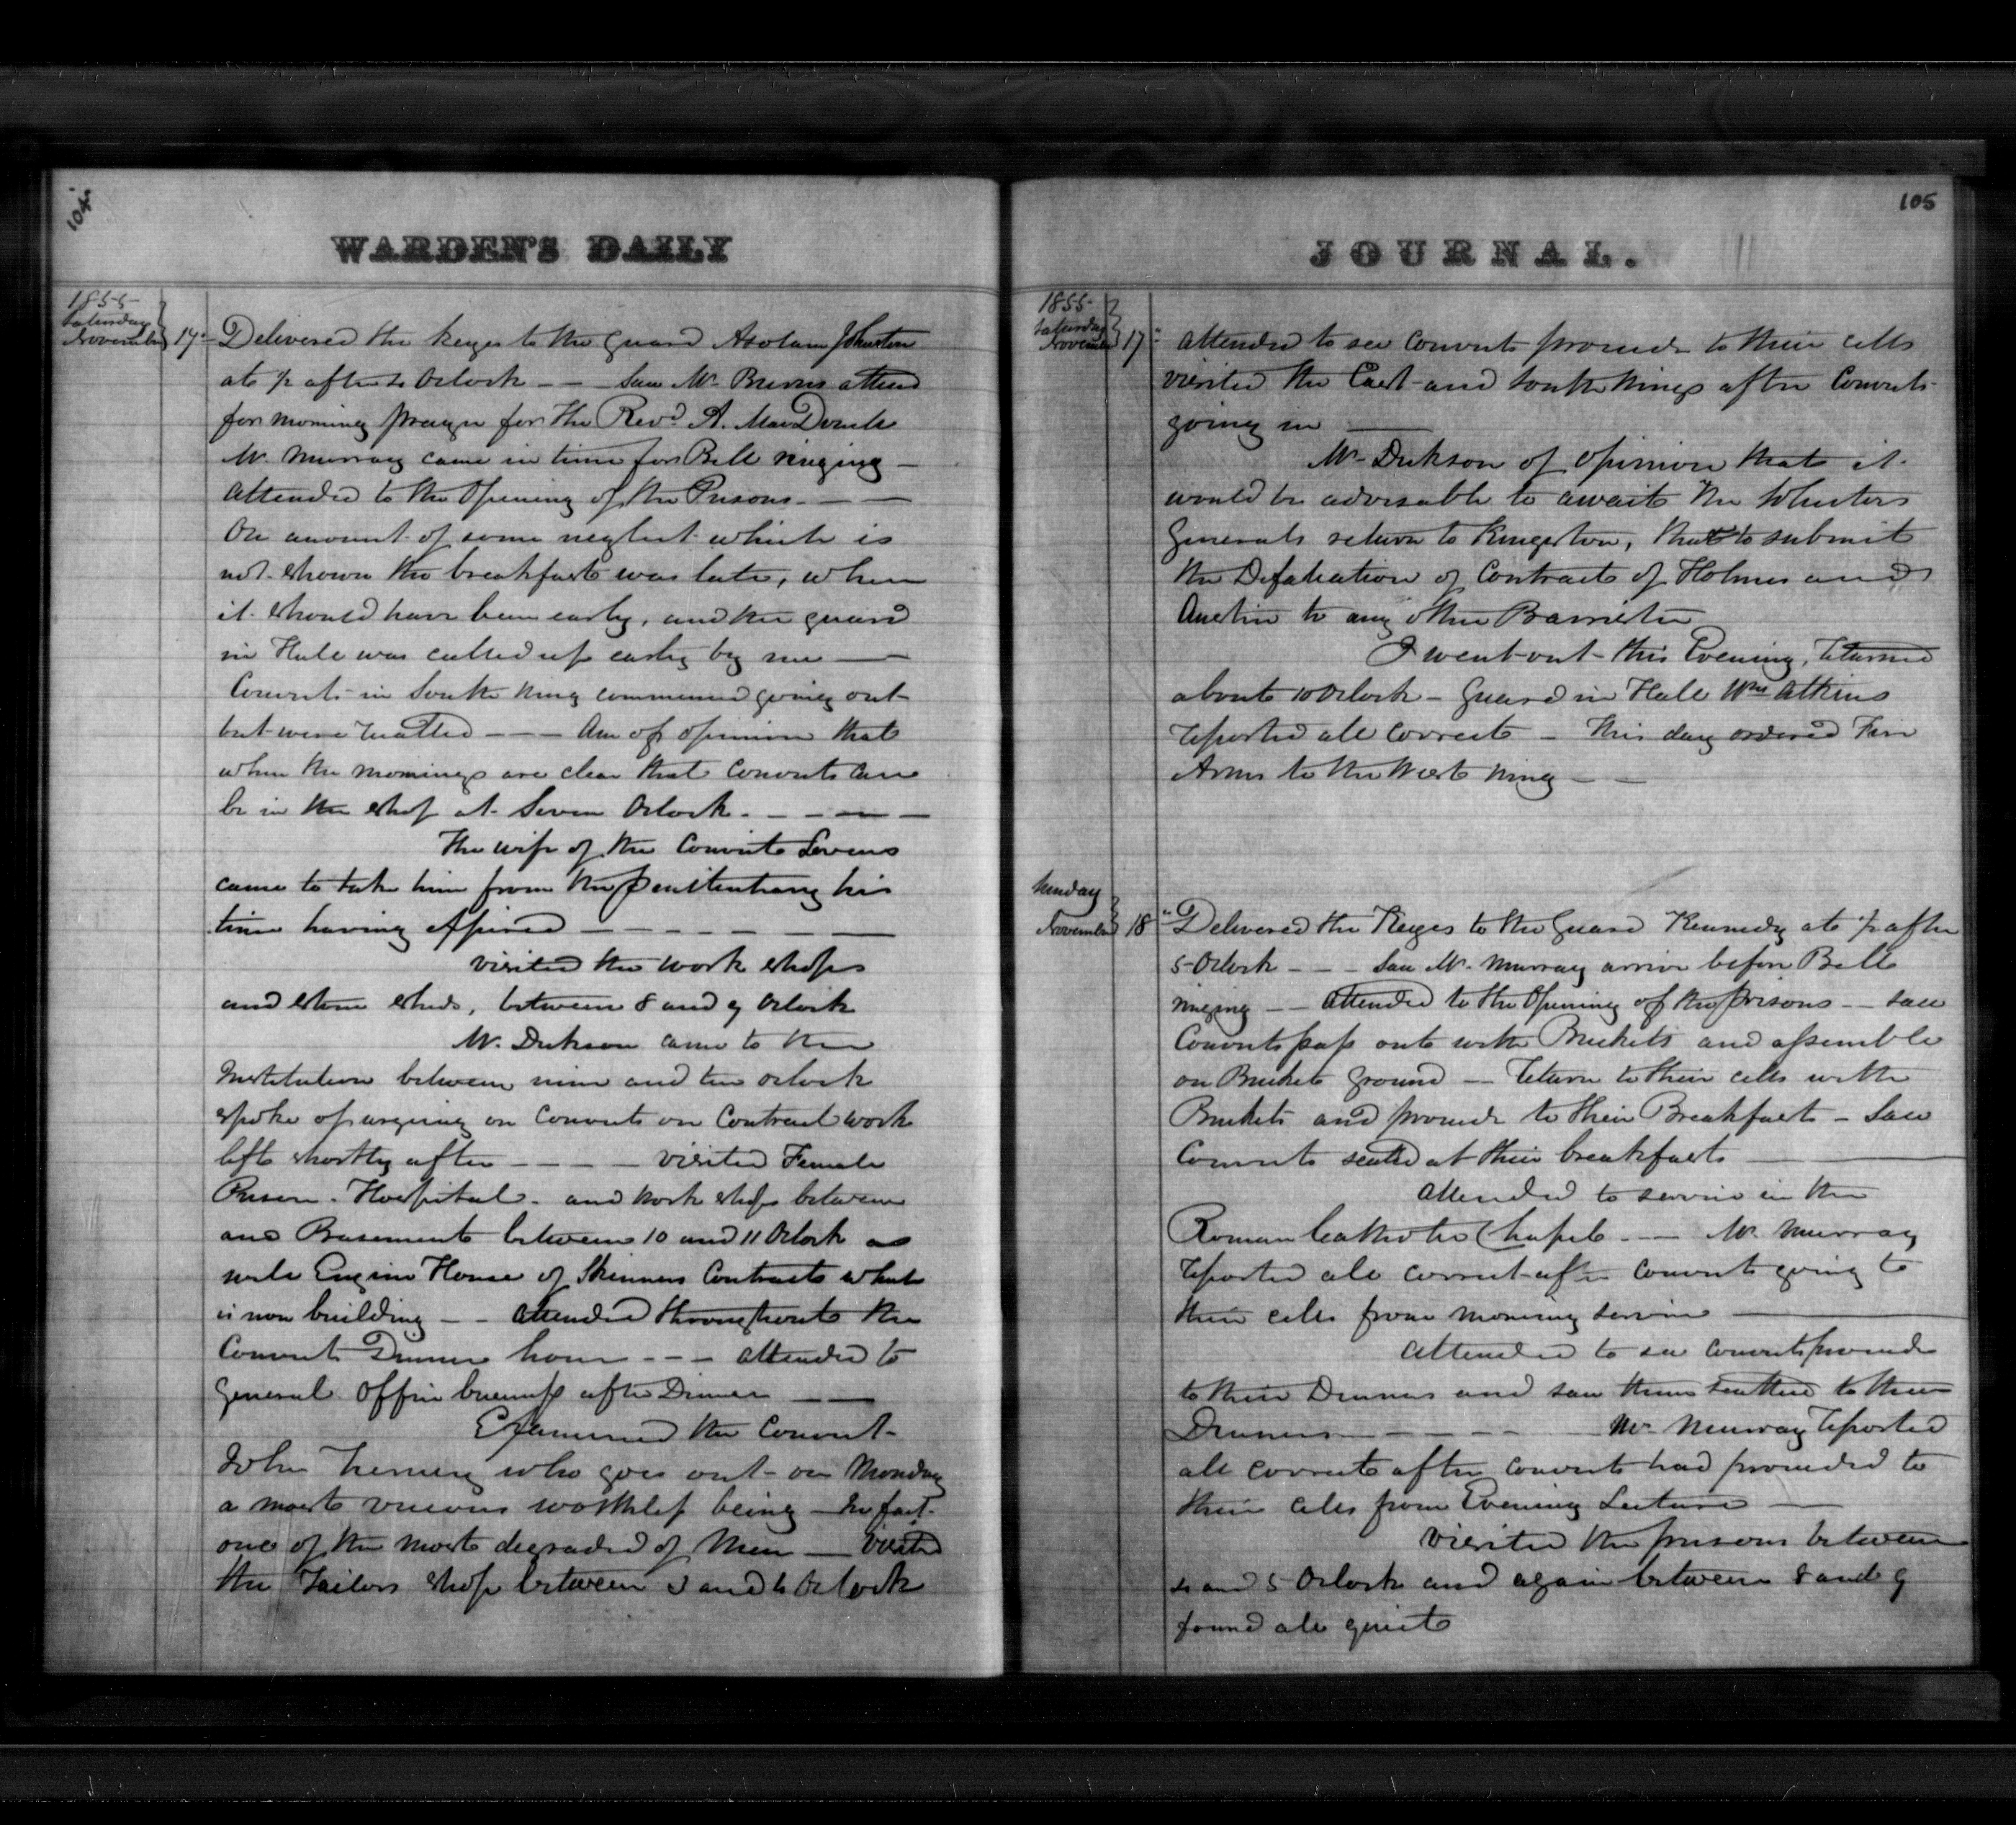 104.
WARDEN'S DAILY
1855
Saturday
November 17" Delivered the keyes to the guard Johnston
at ½ after 4 Oclock - - Saw Mr. Burns attend
for morning prayer for the Revd. A. MacDonell
Mr. Murray came in time for Bell ringing -
attended to the Opening of the Prisons - -
On account of some neglect which is
not shown the breakfast was late, when
it should have been early, and the guard
in Hall was called up early by me -
Convicts in South Wing commenced going out
but were - - - Am of opinion that
when the mornings are clear that Convicts can
be in the shop at Seven Oclock. - - - -
The wife of the Convict
came to take him from the Penitentiary his
time having expired - - - - - -
visited the work shops
and stone sheds, between 8 and 9 Oclock
Mr. Dickson came to the
Institution between nine and ten oclock
spoke of urging on Convicts on Contract work
left shortly after - - - - visited Female
Prison - Hospital - and work shops between
and Basements between 10 and 11 Oclock as
well Engine House of Skinners Contracts what
is now building - - attended throughout the
Convict Dinner hour - - - attended to
general Office business after Dinner - -
Examined the Convict
John who goes out on Monday
a most vicious worthless being - In fact
one of the most degraded of Men - visited
the Tailors shop between 3 and 4 Oclock
105
JOURNAL.
1855
Saturday
November 17" attended to see Convicts proceed to their cells
visited the East and South Wings after Convicts
going in -
Mr Dickson of Opinion that it
would be advisable to await the Solicitor
Generals return to Kingston, than to submit
the of Contract of Holmes and
Austin to any other Barrister
I went out this Evening, returned
about 10 Oclock - Guard in Hall Wm Atkins
reported all Correct - This day ordered Fire
Arms to the West Wing - -
Sunday
November 18" Delivered the Keyes to the Guard Kennedy at ½ after
5 Oclock - - - Saw Mr. Murray arrive before Bell
ringing - - attended to the Opening of the prisons - saw
Convicts pass out with Buckets and assemble
on Bucket ground - return to their cells with
Buckets and proceed to their Breakfast - Saw
Convicts seated at their breakfasts
attended to service in the
Roman Catholic Chapel - - - Mr. Murray
reported all correct after Convicts going to
their cells from morning service
Attended to see Convicts proceed
to their Dinners and saw them seatted to their
Dinners - - - - - Mr. Murray reported
all correct after Convicts had proceeded to
their cells from Evening Lecture -
Visited the prisons between
4 and 5 Oclock and again between 8 and 9
found all quiet